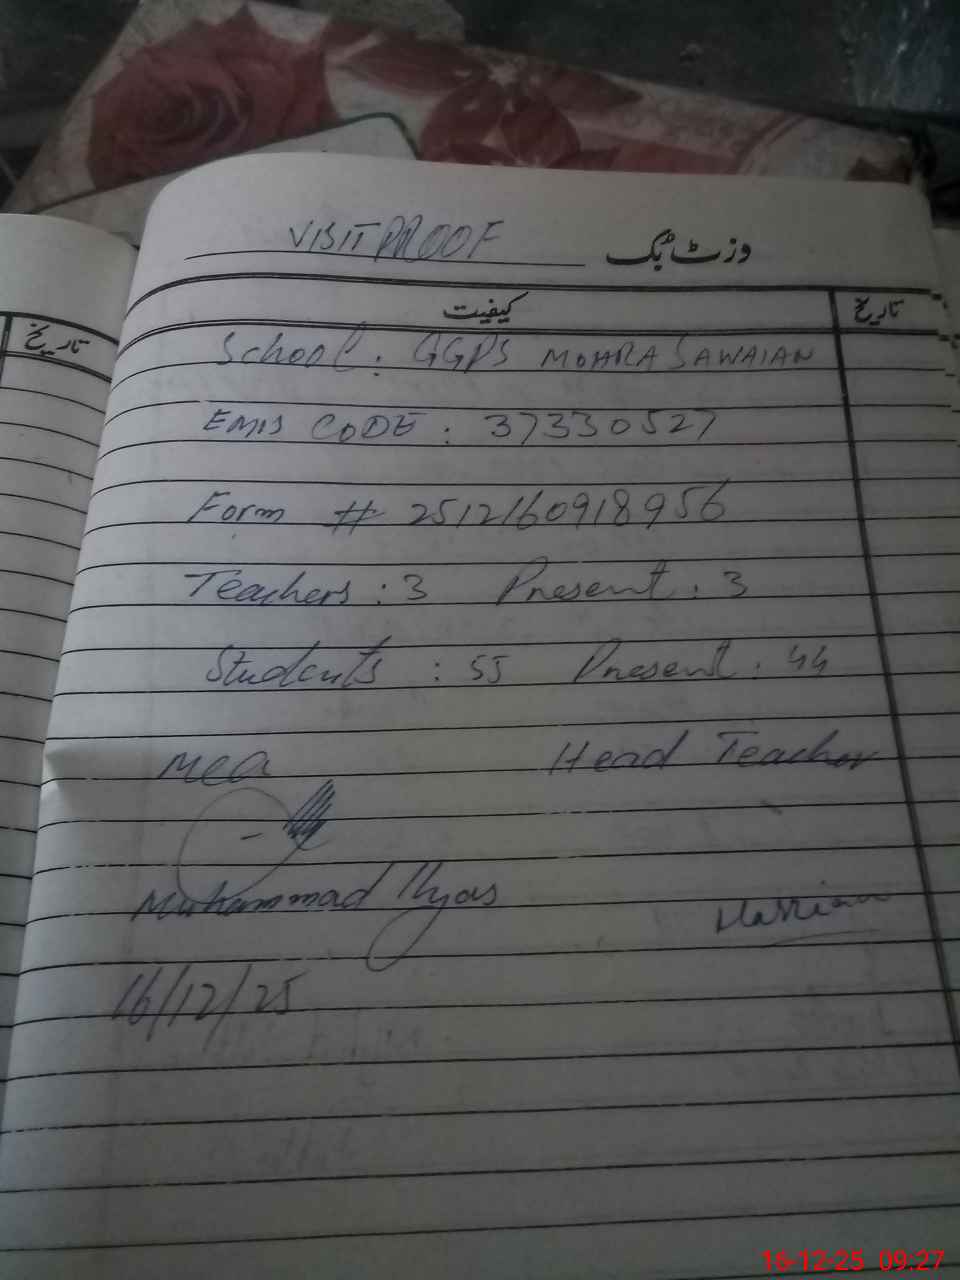 VISIT PROOF وزٹ بک
کیفیت تاریخ
تاریخ
School : GGPS MOHRA SAWAIAN
EMIS CODE : 37330527
Form # 2512160918956
Teachers : 3 Present : 3
Students : 55 Present : 44
MEA Head Teacher
Muhammad Ilyas
16/12/25
16-12-25 09:27